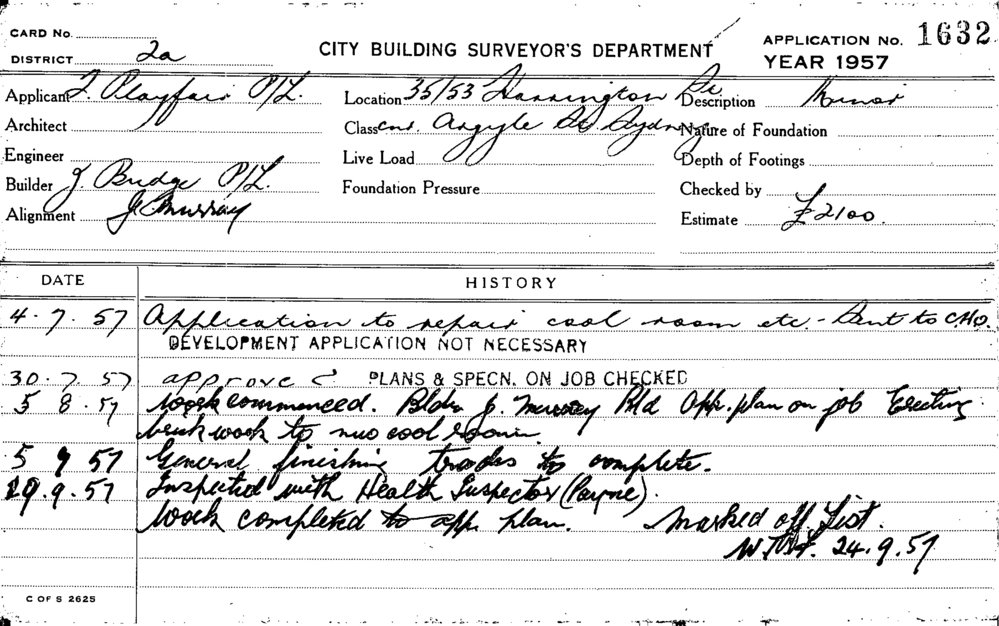 CARD No.
DISTRICT 2a
CITY BUILDING SURVEYOR'S DEPARTMENT
APPLICATION No. 1632
YEAR 1957
Applicant J. Playfair P/L.
Location 35/53 Harrington St.
Description Minor
Architect
Class cnr. Argyle St. Sydney
Nature of Foundation
Engineer
Live Load
Depth of Footings
Builder J. Bridge P/L.
Foundation Pressure
Checked by
Alignment J. Murray
Estimate £2100.
DATE HISTORY
4.7.57 Application to repair cool room etc - Sent to C.H.O.
DEVELOPMENT APPLICATION NOT NECESSARY
30.7.57 approved PLANS & SPECN. ON JOB CHECKED
5 8.57 Work commenced. Bldr J. Murray P/Ld App. plan on job Erecting
brick work to new cool room.
5 9 57 General finishing trades to complete.
19.9.57 Inspected with Health Inspector (Payne).
Work completed to app. plan. Marked off List.
24.9.57
C OF S 2625